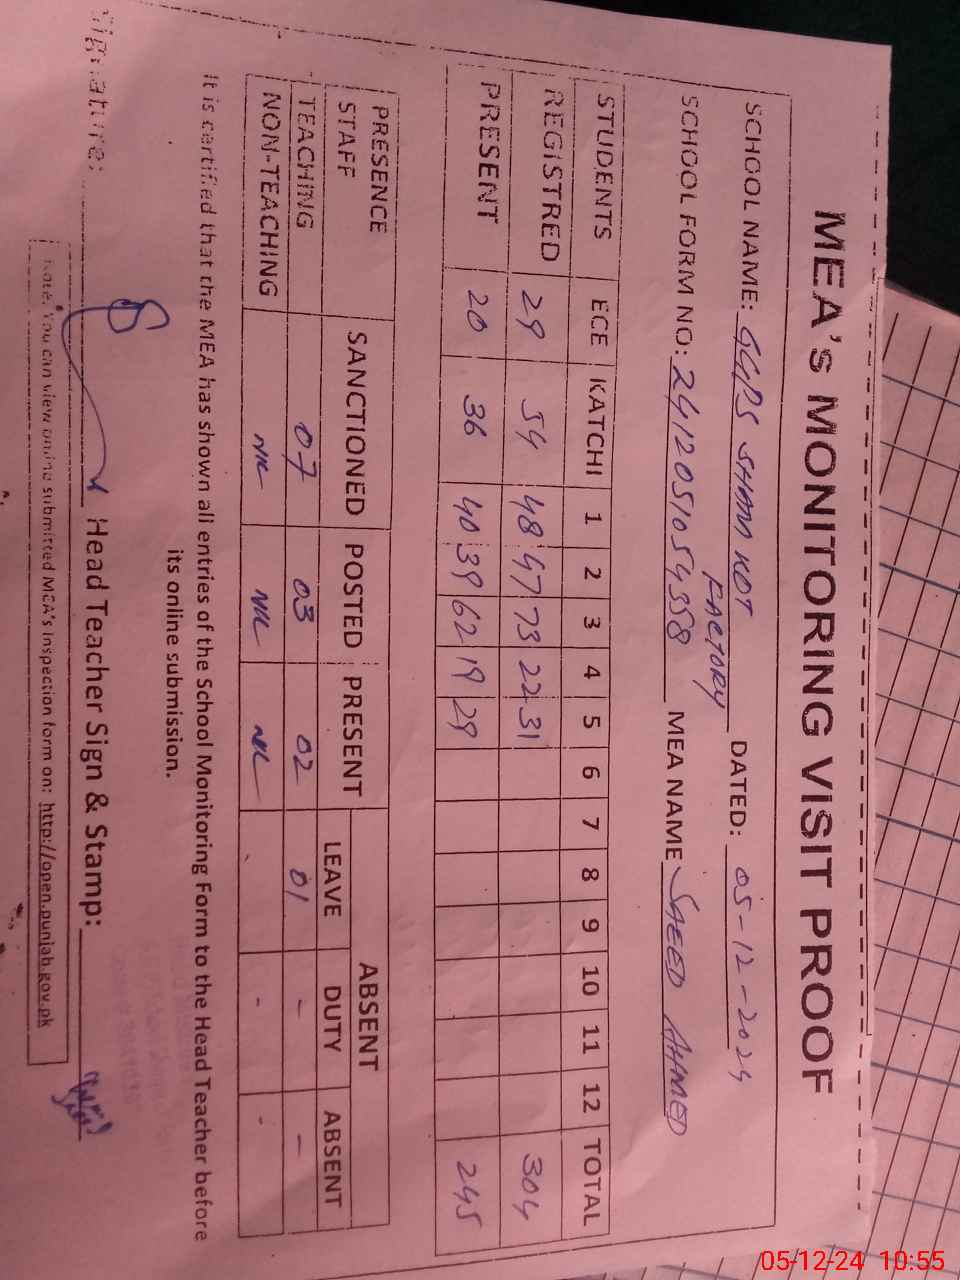 MEA's MONITORING VISIT PROOF
SCHOOL NAME: GGPS SHAN HOT FACTORY DATED: 05-12-2024
SCHOOL FORM NO: 2412051054358 MEA NAME SAEED AHMED
STUDENTS ECE KATCHI 1 2 3 4 5 6 7 8 9 10 11 12 TOTAL
REGISTRED 29 54 48 47 73 22 31 304
PRESENT 20 36 40 39 62 19 29 245
PRESENCE STAFF SANCTIONED POSTED PRESENT ABSENT
LEAVE DUTY ABSENT
TEACHING 07 03 02 01 - -
NON-TEACHING NIL NIL NIL - -
It is certified that the MEA has shown all entries of the School Monitoring Form to the Head Teacher before
its online submission.
Signature: Head Teacher Sign & Stamp:
Note: You can view online submitted MEA's Inspection form on: http://open.punjab.gov.pk
05-12-24 10:55